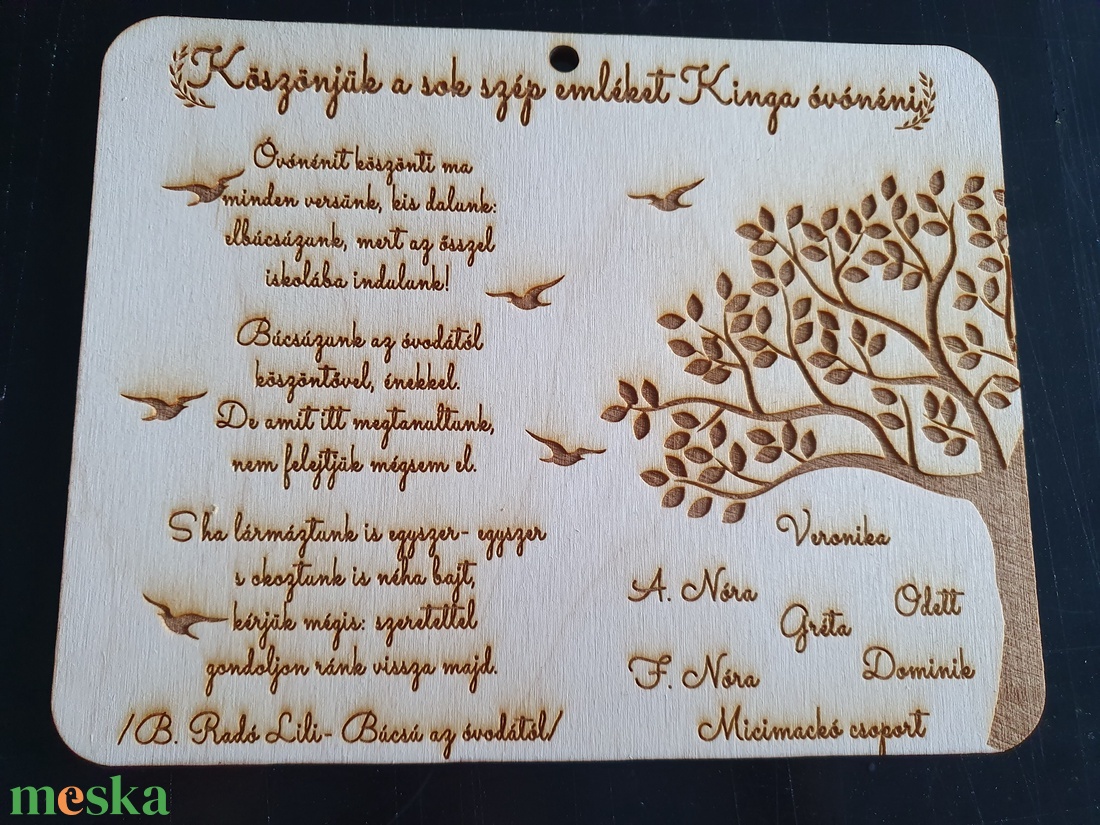 Köszönjük a sok szép emléket Kinga óvónéni
Óvónénit köszönti ma
minden versünk, kis dalunk:
elbúcsúzunk, mert az ősszel
iskolába indulunk!
Búcsúzunk az óvodától
köszöntővel, énekkel.
De amit itt megtanultunk,
nem felejtjük mégsem el.
S ha lármáztunk is egyszer- egyszer
s okoztunk is néha bajt,
kérjük mégis: szeretettel
gondoljon ránk vissza majd.
/B. Radó Lili- Búcsú az óvodától/
Veronika
A. Nóra
Odett
Gréta
F. Nóra
Dominik
Micimackó csoport
meska